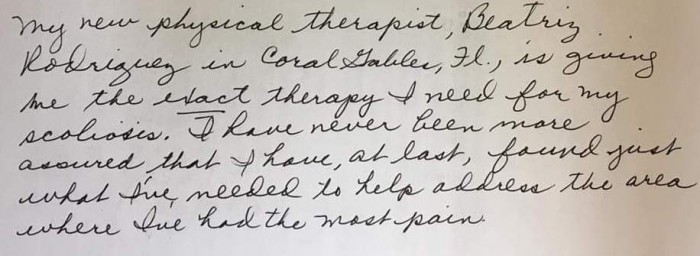 My new physical therapist, Beatriz
Rodriguez in Coral Gables, Fl., is giving
me the exact therapy I need for my
scoliosis. I have never been more
assured that I have, at last, found just
what I've needed to help address the area
where I've had the most pain.